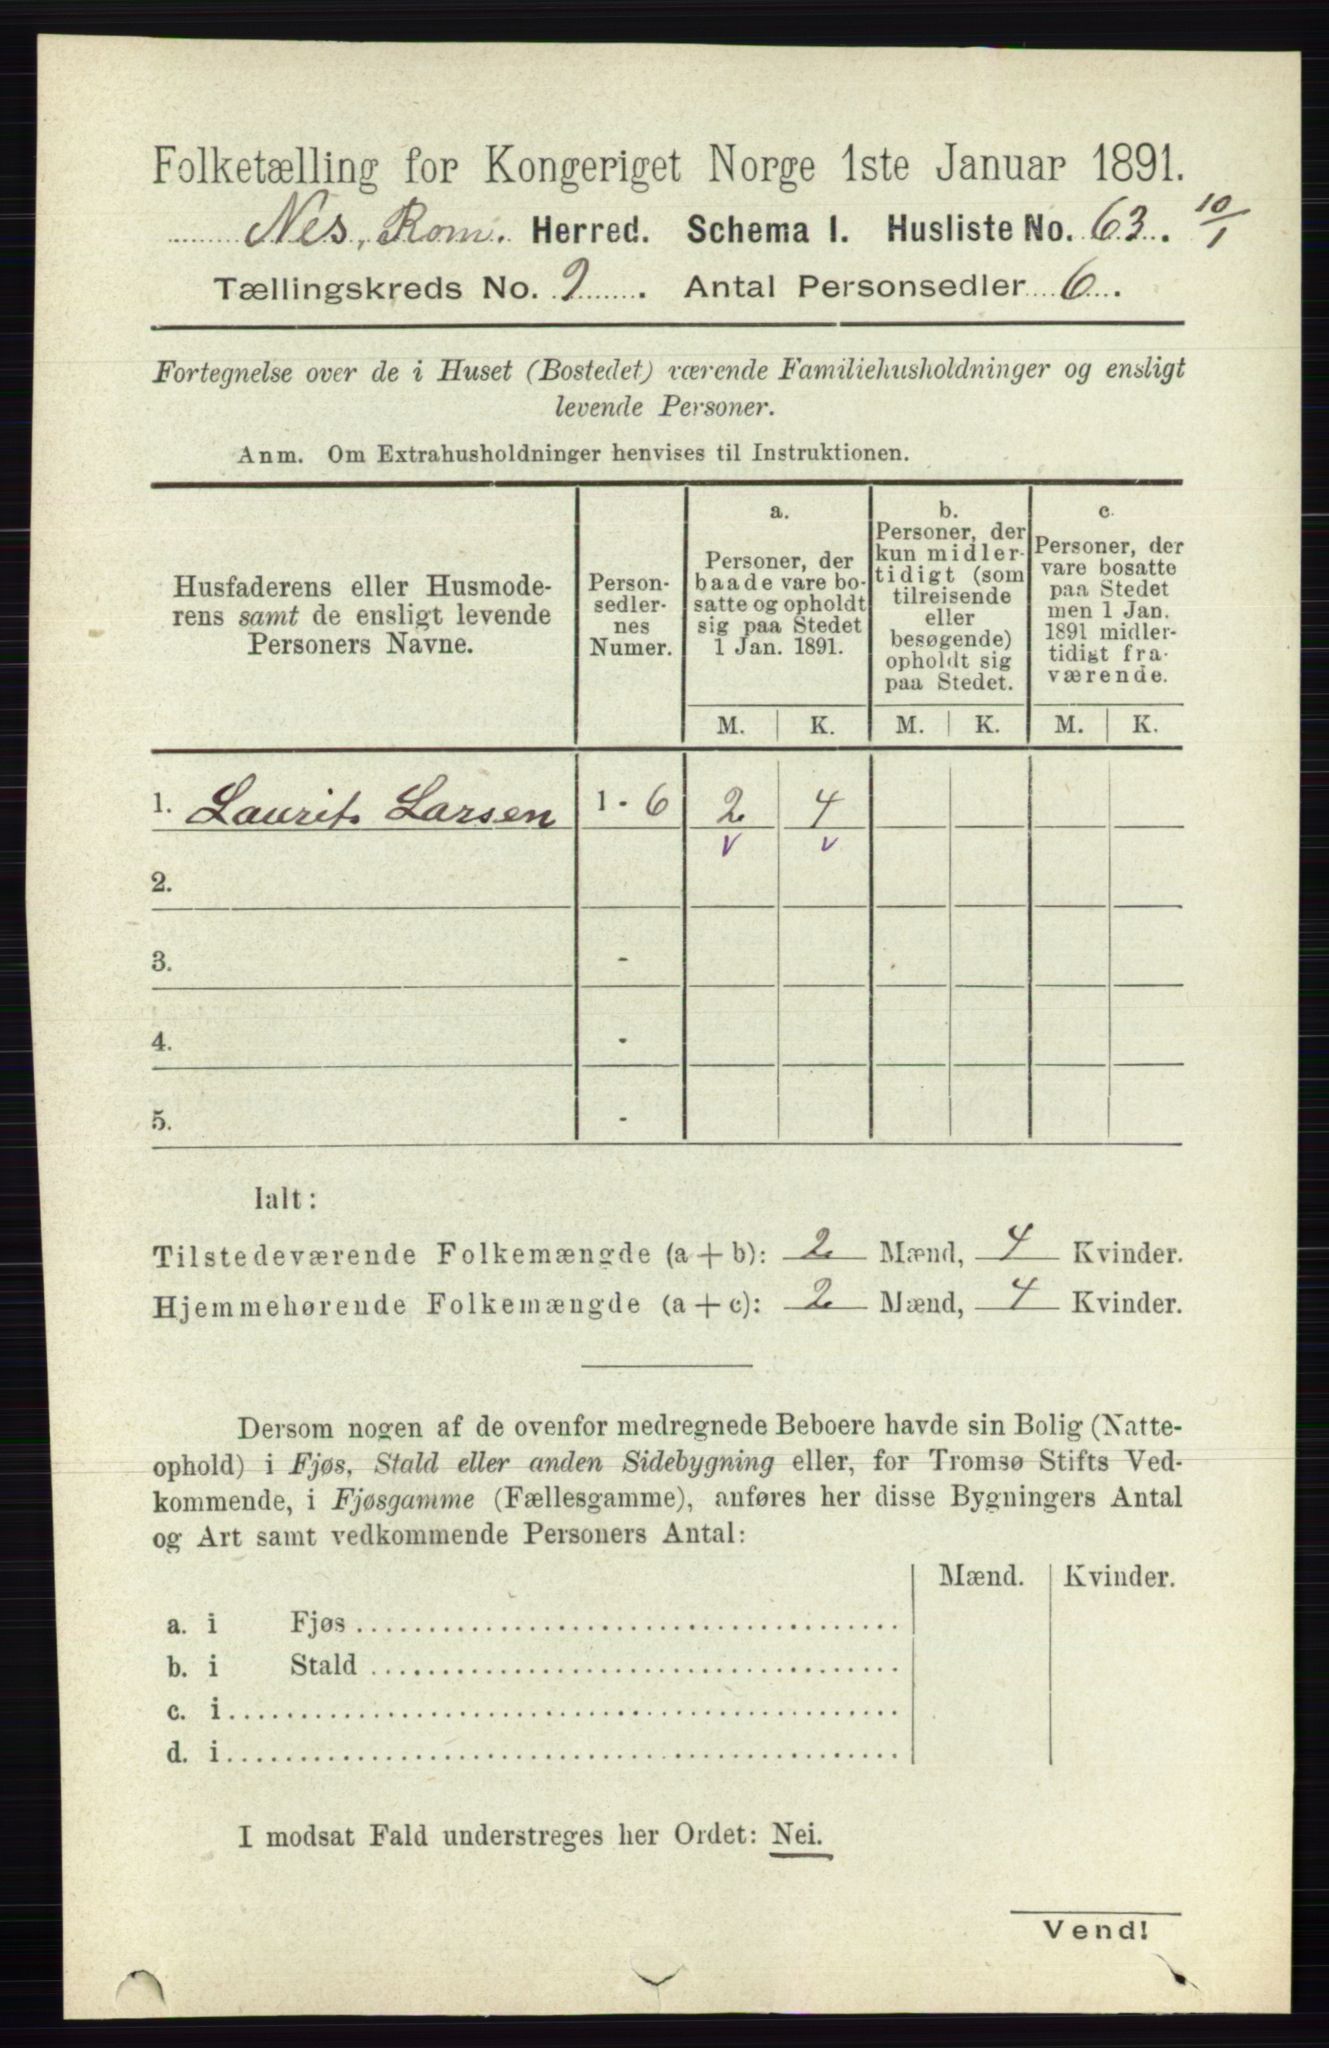 Folketælling for Kongeriget Norge 1ste Januar 1891.
Nes, Rom. Herred. Schema I. Husliste No. 63. 10/1
Tællingskreds No. 9. Antal Personsedler 6.
Fortegnelse over de i Huset (Bostedet) værende Familiehusholdninger og ensligt
levende Personer.
Anm. Om Extrahusholdninger henvises til Instruktionen.
Husfaderens eller Husmode-
rens samt de ensligt levende
Personers Navne.
Person-
sedler-
nes
Numer.
a.
Personer, der
baade vare bo-
satte og opholdt
sig paa Stedet
1 Jan. 1891.
b.
Personer, der
kun midler-
tidigt (som
tilreisende
eller
besøgende)
opholdt sig
paa Stedet.
c.
Personer, der
vare bosatte
paa Stedet
men 1 Jan.
1891 midler-
tidigt fra-
værende.
M. K. M. K. M. K.
1. Laurits Larsen 1 - 6 2 4
v v
2.
3. -
4. -
5. -
Ialt:
Tilstedeværende Folkemængde (a + b): 2 Mænd, 4 Kvinder.
Hjemmehørende Folkemængde (a + c): 2 Mænd, 4 Kvinder.
Dersom nogen af de ovenfor medregnede Beboere havde sin Bolig (Natte-
ophold) i Fjøs, Stald eller anden Sidebygning eller, for Tromsø Stifts Ved-
kommende, i Fjøsgamme (Fællesgamme), anføres her disse Bygningers Antal
og Art samt vedkommende Personers Antal:
Mænd. Kvinder.
a. i Fjøs
b. i Stald
c. i
d. i
I modsat Fald understreges her Ordet: Nei.
Vend!